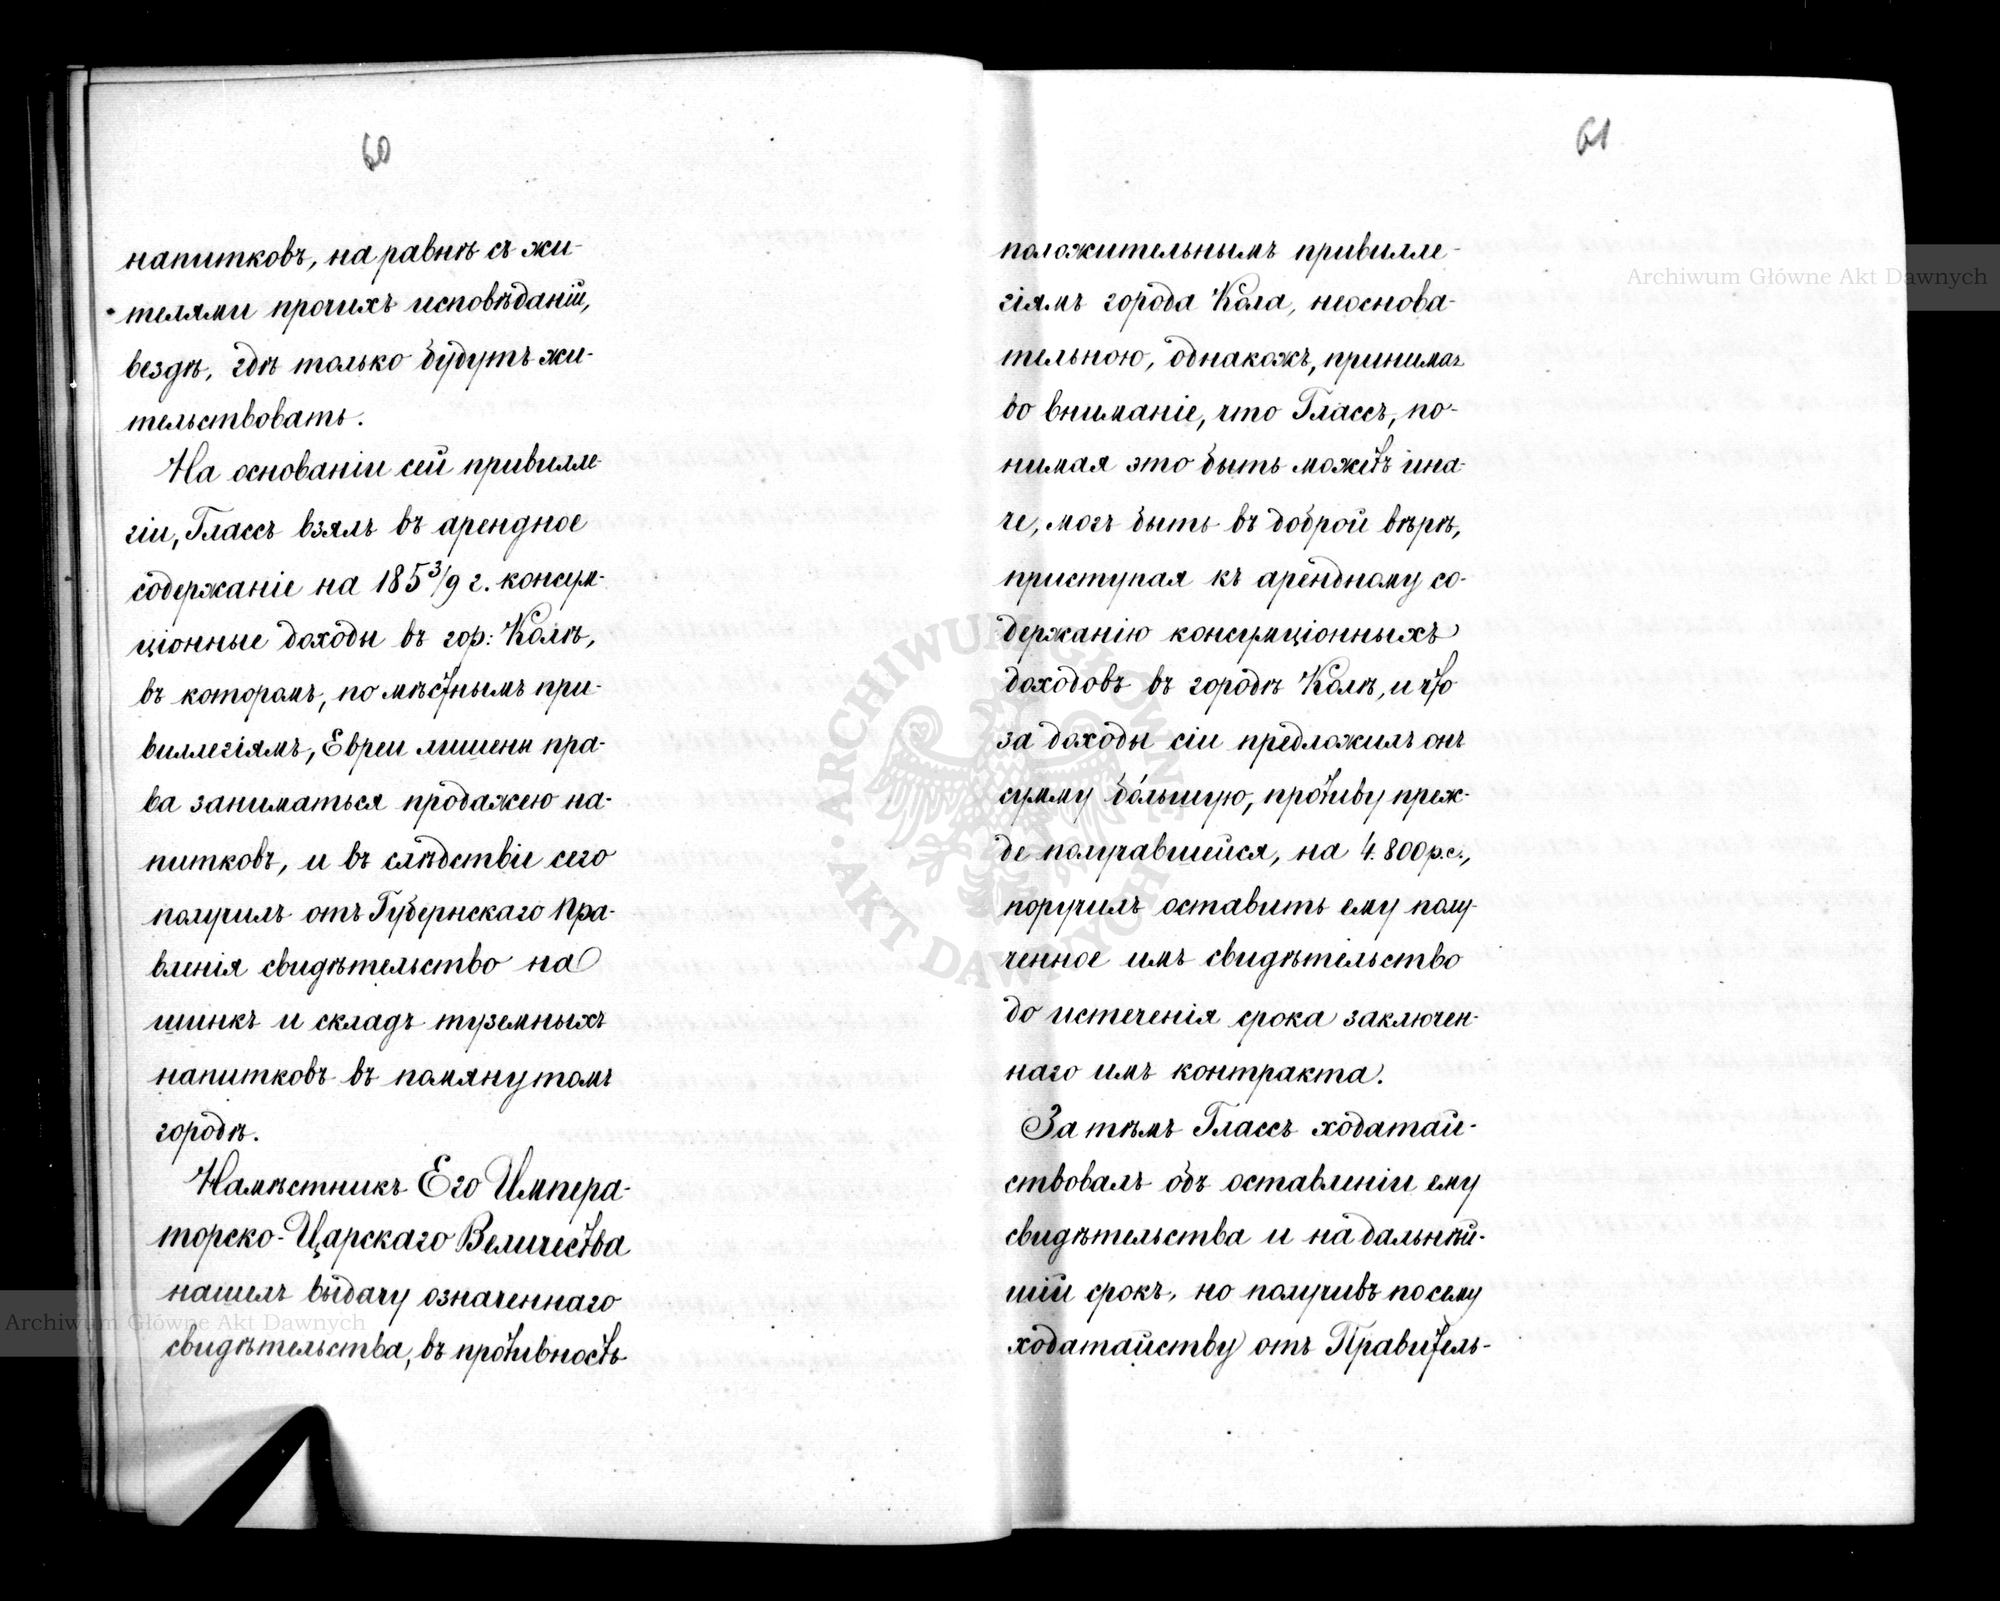 60
напитковъ, на равнѣ съ жи-
телями прочихъ исповѣданій,
вездѣ, гдѣ только будутъ жи-
тельствовать.
На основаніи сей привилле-
гіи, Глассъ взялъ въ арендное
содержаніе на 185 3/9 г. консум-
ціонные доходы въ гор: Колѣ,
въ которомъ, по мѣстнымъ при-
виллегіямъ, Евреи лишены пра-
ва заниматься продажею на-
питковъ, и въ слѣдствіе сего
получилъ отъ Губернскаго Пра-
вленія свидѣтельство на
шинкъ и складъ туземныхъ
напитковъ въ помянутомъ
городѣ.
Намѣстникъ Его Импера-
торско-Царскаго Величества
нашелъ выдачу означеннаго
свидѣтельства, въ противность
61
положительнымъ привилле-
гіямъ города Кола, неоснова-
тельною, однакожъ, принимая
во вниманіе, что Глассъ, по-
нимая это быть можетъ ина-
че, могъ быть въ доброй вѣрѣ,
приступая къ арендному со-
держанію консумціонныхъ
доходовъ въ городѣ Колѣ, и что
за доходы сіи предложилъ онъ
сумму бóльшую, противу преж-
де получавшейся, на 4.800 р.с.,
поручилъ оставить ему полу-
ченное имъ свидѣтельство
до истеченія срока заключен-
наго имъ контракта.
За тѣмъ Глассъ ходатай-
ствовалъ объ оставленіи ему
свидѣтельства и на дальнѣй-
шій срокъ, но получивъ по сему
ходатайству отъ Правитель-
Archiwum Główne Akt Dawnych
Archiwum Główne Akt Dawnych
ARCHIWUM GŁÓWNE AKT DAWNYCH